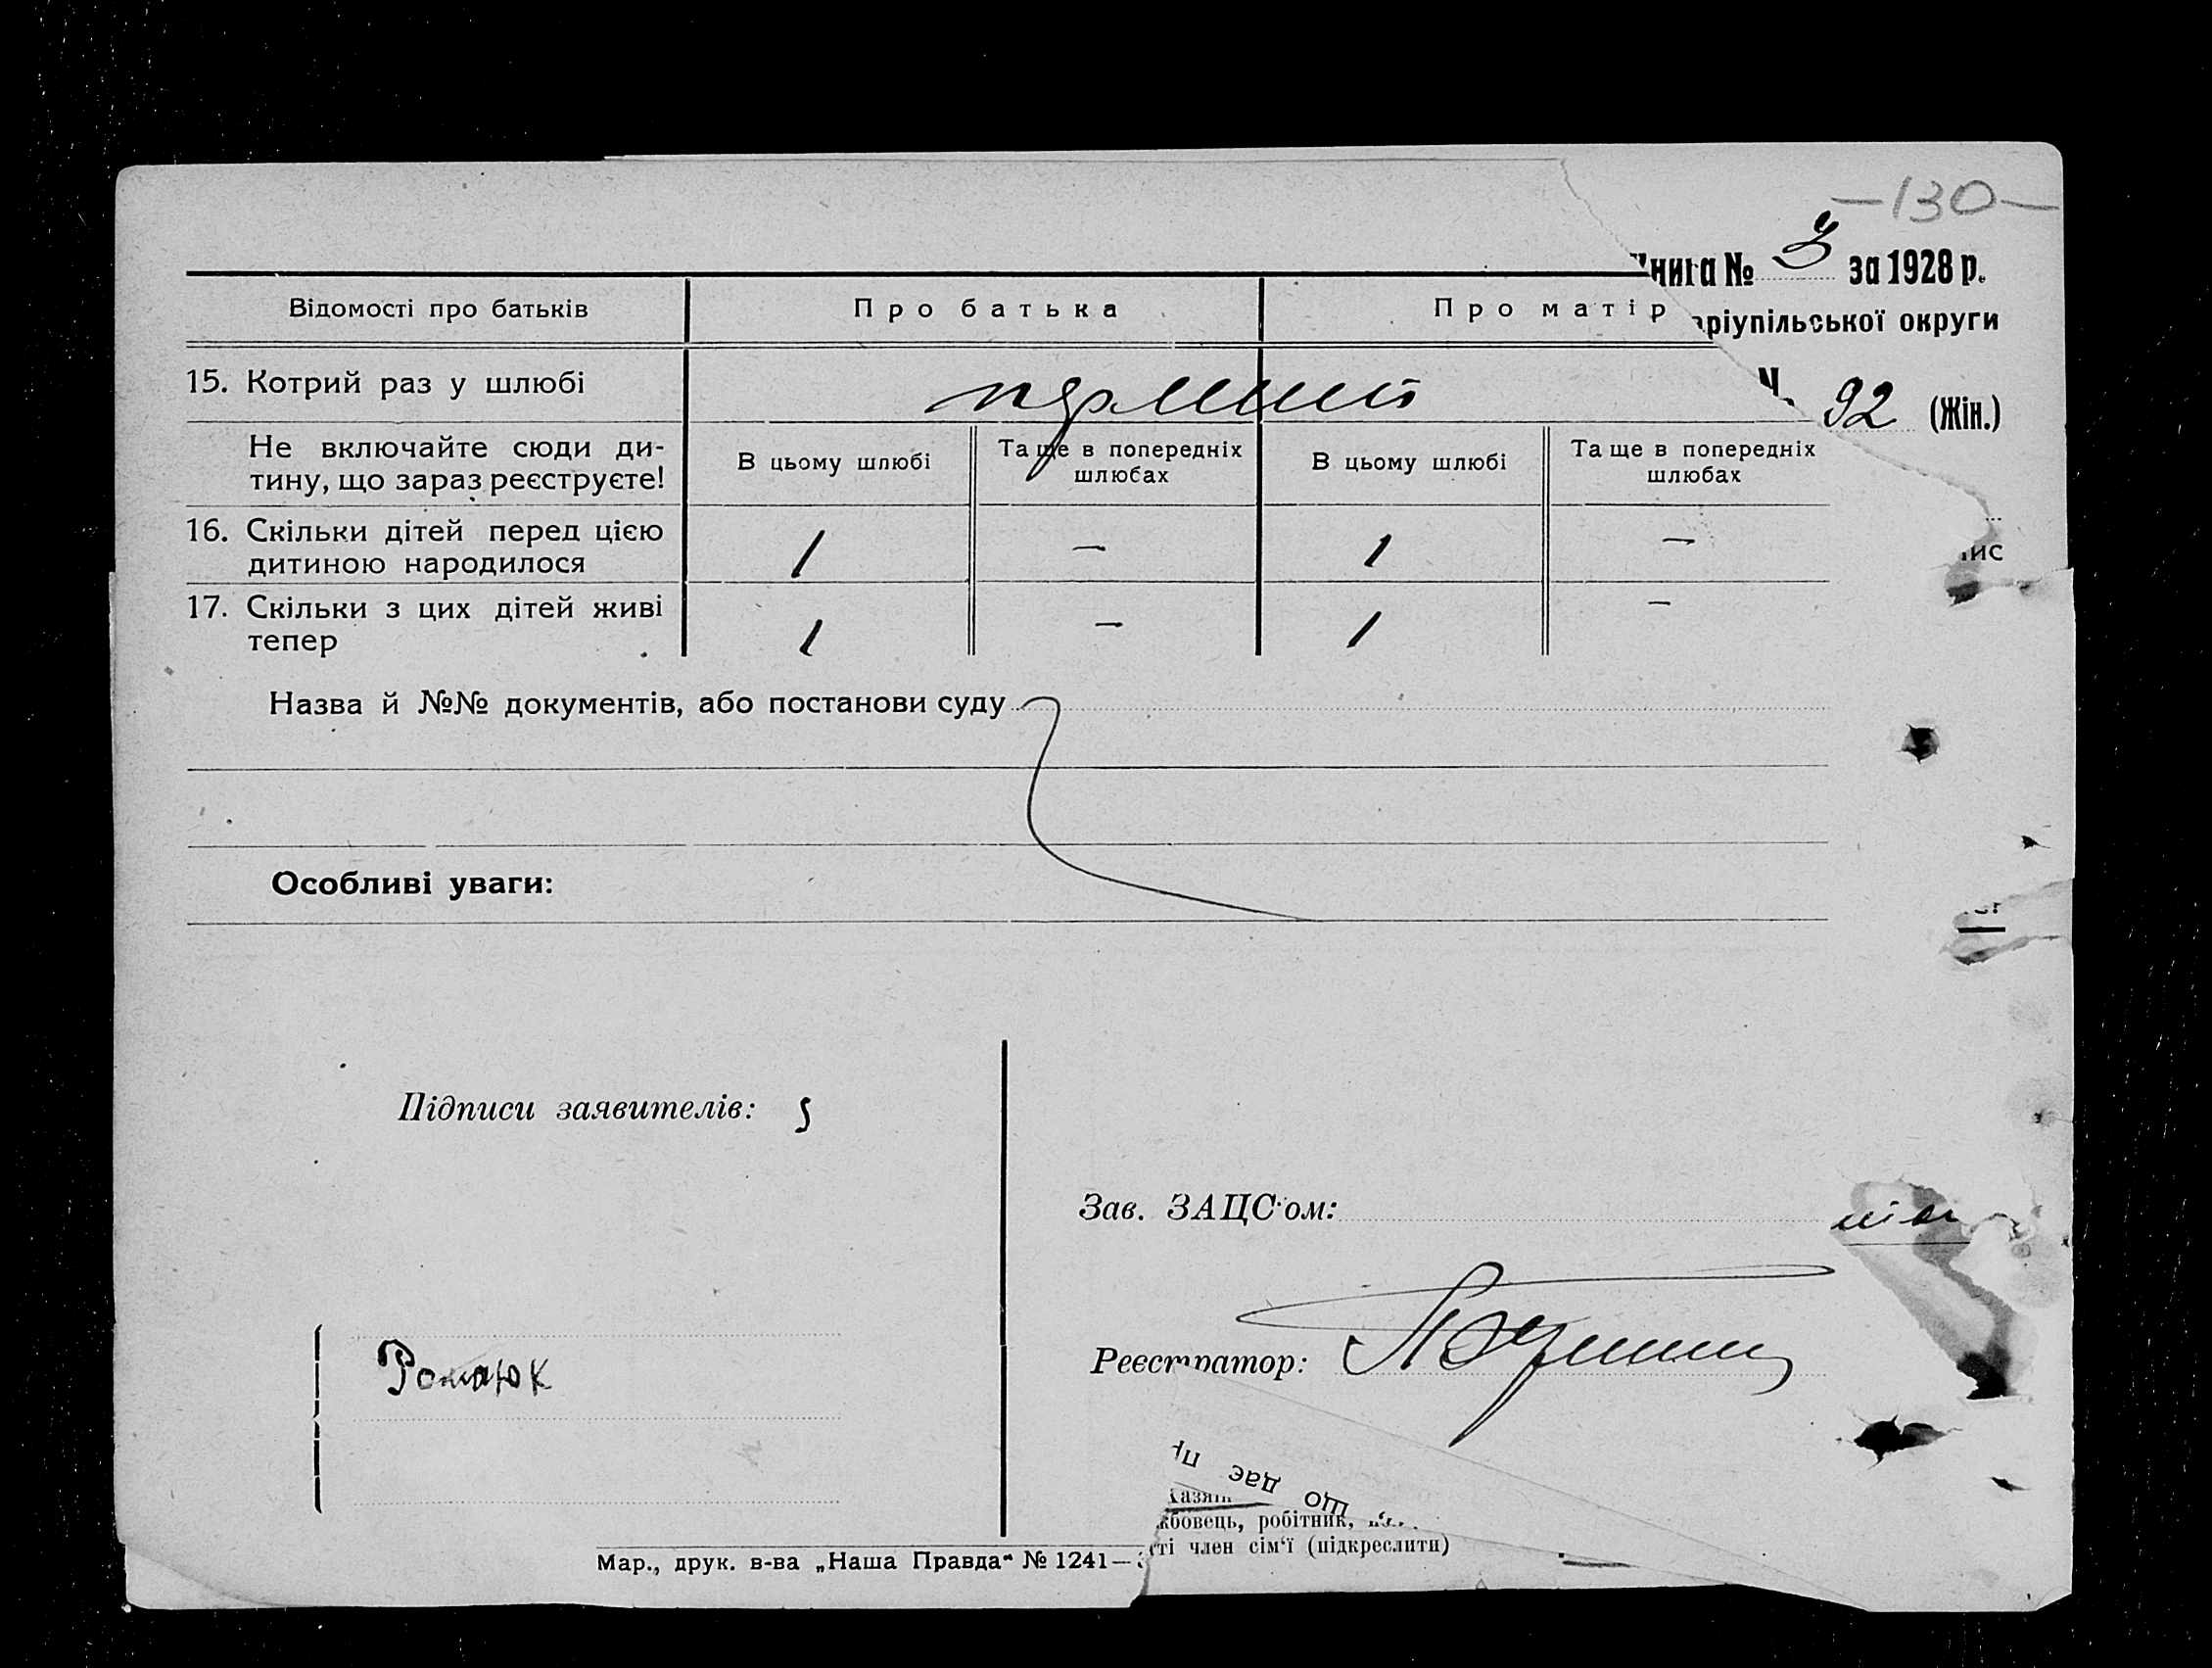 —130—
нига № 3 за 1928 р.
Відомості про батьків Про батька Про матір
аріупільської округи
15. Котрий раз у шлюбі перший
Ч. 92 (Жін.)
Не включайте сюди ди-
тину, що зараз реєструєте!
В цьому шлюбі Та ще в попередніх шлюбах В цьому шлюбі Та ще в попередніх шлюбах
16. Скільки дітей перед цією
дитиною народилося 1 — 1 —
ис
17. Скільки з цих дітей живі
тепер 1 — 1 —
Назва й №№ документів, або постанови суду
Особливі уваги:
Підписи заявителів:
Зав. ЗАЦС'ом:
Реєстратор:
Романюк
що дає пр
казяїн
жбовець, робітник,
ті член сім'ї (підкреслити)
Мар., друк. в-ва „Наша Правда" № 1241—